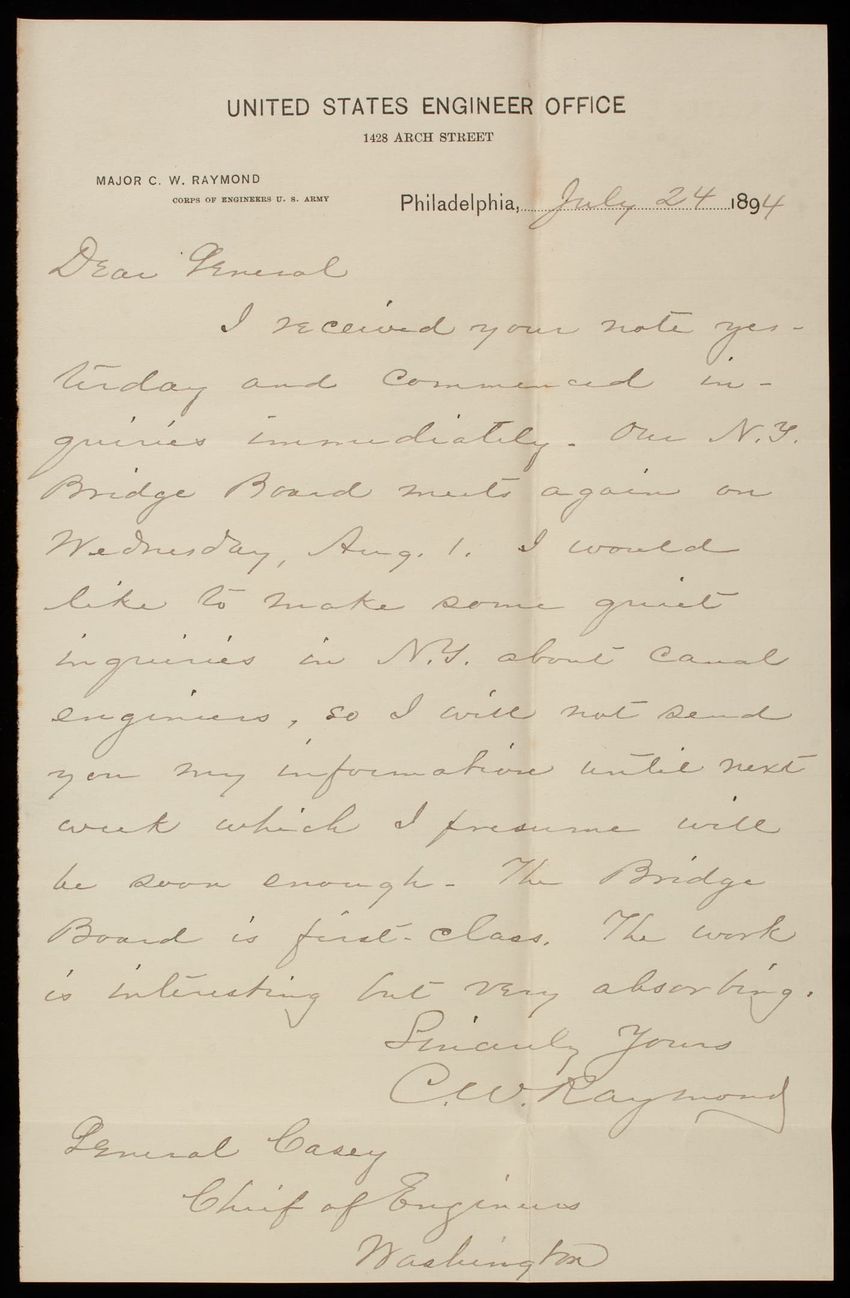 UNITED STATES ENGINEER OFFICE
1428 ARCH STREET
MAJOR C. W. RAYMOND
CORPS OF ENGINEERS U. S. ARMY
Philadelphia, July 24 1894
Dear General
I received your note yes-
terday and commenced in-
quiries immediately. Our N.Y.
Bridge Board meets again on
Wednesday, Aug. 1. I would
like to make some quiet
inquiries in N.Y. about canal
engineers, so I will not send
you my information until next
week which I presume will
be soon enough. The Bridge
Board is first-class. The work
is interesting but very absorbing.
Sincerely Yours
C.W. Raymond
General Casey
Chief of Engineers
Washington